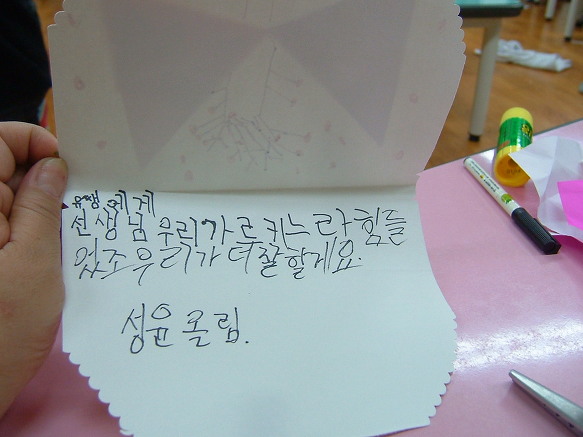 유쌤 에게
선생님 우리 가르키느라 힘들
었조 우리가 더 잘할게요.
성윤 올림.